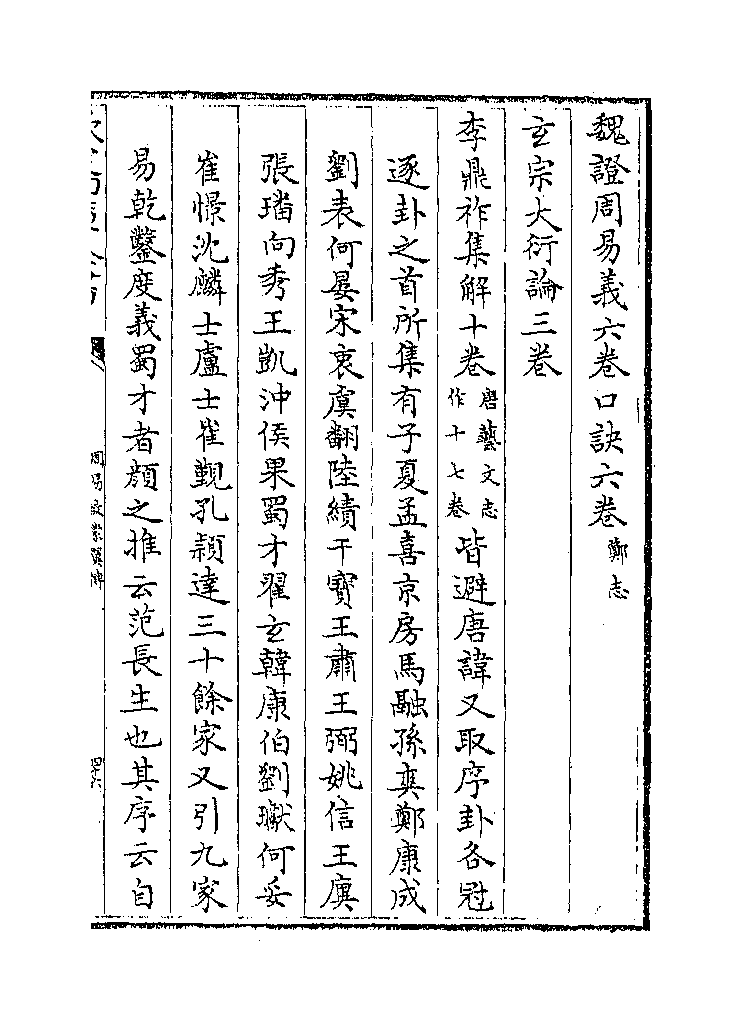 魏證周易義六卷口訣六卷鄭志
玄宗大衍論三卷
李鼎祚集解十卷唐藝文志作十七卷皆避唐諱又取序卦各冠
逐卦之首所集有子夏孟喜京房馬融孫爽鄭康成
劉表何晏宋衷虞翻陸績干寶王肅王弼姚信王廙
張璠向秀王凱沖侯果蜀才翟玄韓康伯劉瓛何妥
崔憬沈麟士盧士崔覲孔穎達三十餘家又引九家
易乾鑿度義蜀才者顔之推云范長生也其序云自
周易啟蒙翼傳
四十六